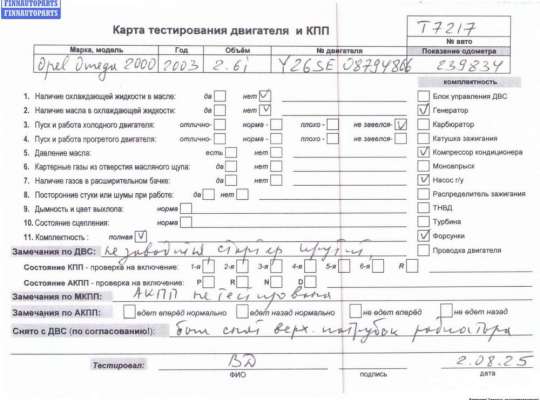 FINNAUTOPARTS
FINNAUTOPARTS
Карта тестирования двигателя и КПП
T7217
№ авто
Марка, модель Год Объём № двигателя Показание одометра
Opel Omega 2000 2003 2.6i Y26SE 08794866 239834
комплектность
1. Наличие охлаждающей жидкости в масле: да нет Блок управления ДВС
2. Наличие масла в охлаждающей жидкости: да нет Генератор
3. Пуск и работа холодного двигателя: отлично- норма - плохо - не завелся- Карбюратор
4. Пуск и работа прогретого двигателя: отлично- норма - плохо - не завелся- Катушка зажигания
5. Давление масла: есть нет Компрессор кондиционера
6. Картерные газы из отверстия масляного щупа: да нет Моновпрыск
7. Наличие газов в расширительном бачке: да нет Насос г/у
8. Посторонние стуки или шумы при работе: да нет Распределитель зажигания
9. Дымность и цвет выхлопа: норма ТНВД
10. Состояние сцепления: норма Турбина
11. Комплектность : полная Форсунки
Замечания по ДВС: не заводился стартер крутит Проводка двигателя
Состояние КПП - проверка на включение: 1-я 2-я 3-я 4-я 5-я 6-я R
Состояние АКПП - проверка на включение: P R N D
Замечания по МКПП: АКПП не тестирована
Замечания по АКПП: едет вперёд нормально едет назад нормально не едет вперед не едет назад
Снято с ДВС (по согласованию!): был снят верх. патрубок радиатора
Тестировал: ВД 2.08.25
ФИО подпись дата